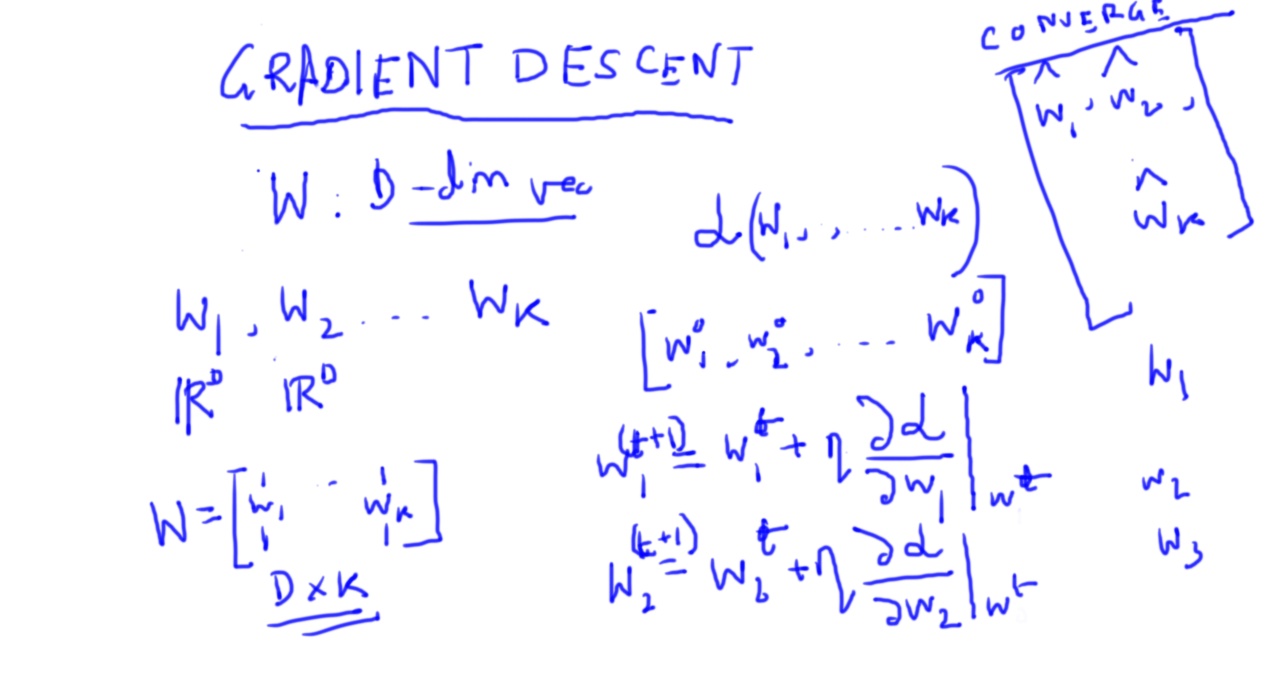 GRADIENT DESCENT
W : D-dim vec
W₁, W₂ ... W_K
ℝᴰ ℝᴰ
W = [w₁ ... w_K]
D × K
L(W₁, , ..... W_K)
[W₁⁰, w₂⁰, .... W_K⁰]
w₁^(t+1) = w₁^t + η ∂L/∂w₁ |_w^t
W₂^(t+1) = W₂^t + η ∂L/∂w₂ |_w^t
CONVERGE
[ŵ₁, ŵ₂,
ŵ_K]
W₁
w₂
W₃